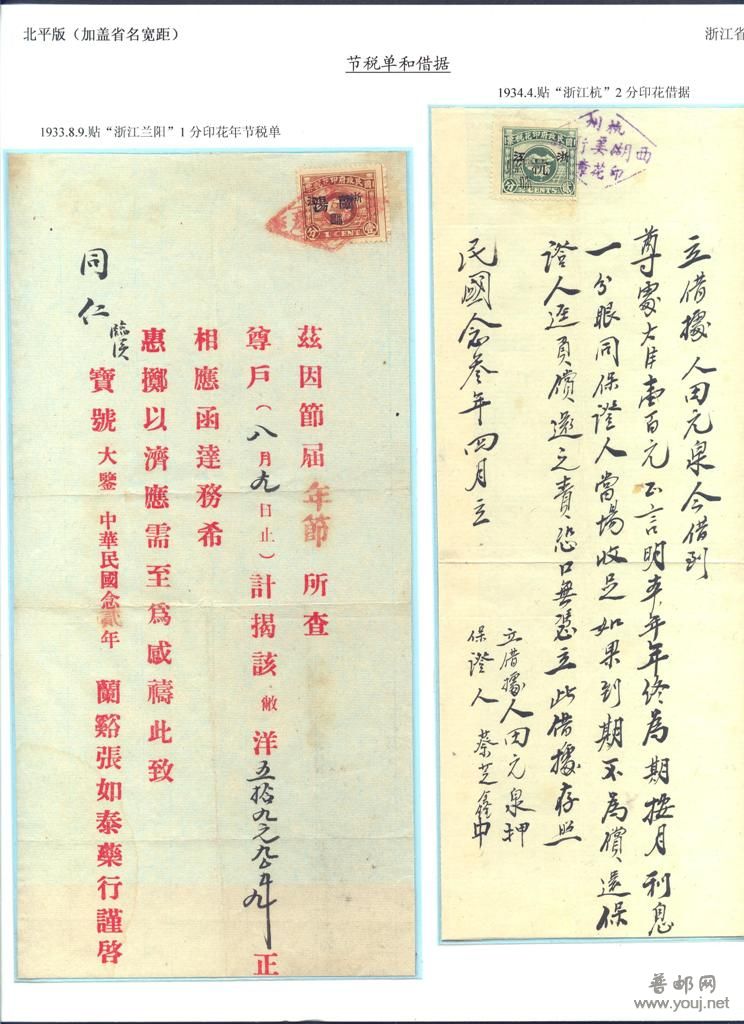 北平版（加盖省名宽距）
浙江省
节税单和借据
1934.4.贴“浙江杭”2分印花借据
1933.8.9.贴“浙江兰阳”1分印花年节税单
國民政府印花税票
1 CENT
分
茲因節屆年節所查
尊戶（八月九日止）計揭該敝洋五拾九元九
正
相應函達務希
惠擲以濟應需至爲感禱此致
同仁臨溪
寶號大鑒 中華民國念貳年 蘭谿張如泰藥行謹啓
國民政府印花税票
浙江
杭
2 CENTS
分
杭州
西湖
印花
立借據人田元泉今借到
尊處大洋壹百元正言明本年年終為期按月利息
一分眼同保證人當場收足如果到期不為償還保
證人連負償還之責恐口無憑立此借據存照
民國念叁年四月立
立借據人田元泉押
保證人 蔡芝鑫
普邮网
www.youj.net